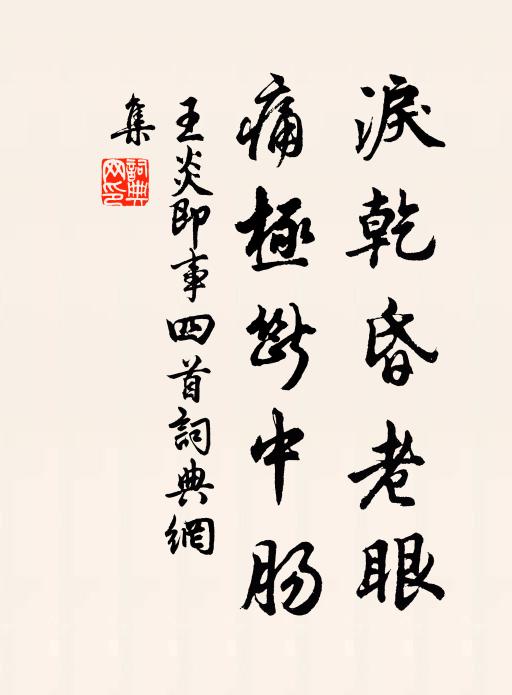 淚乾昏老眼
痛極斷中腸
王炎即事四首詞典網
集
詞典
網印